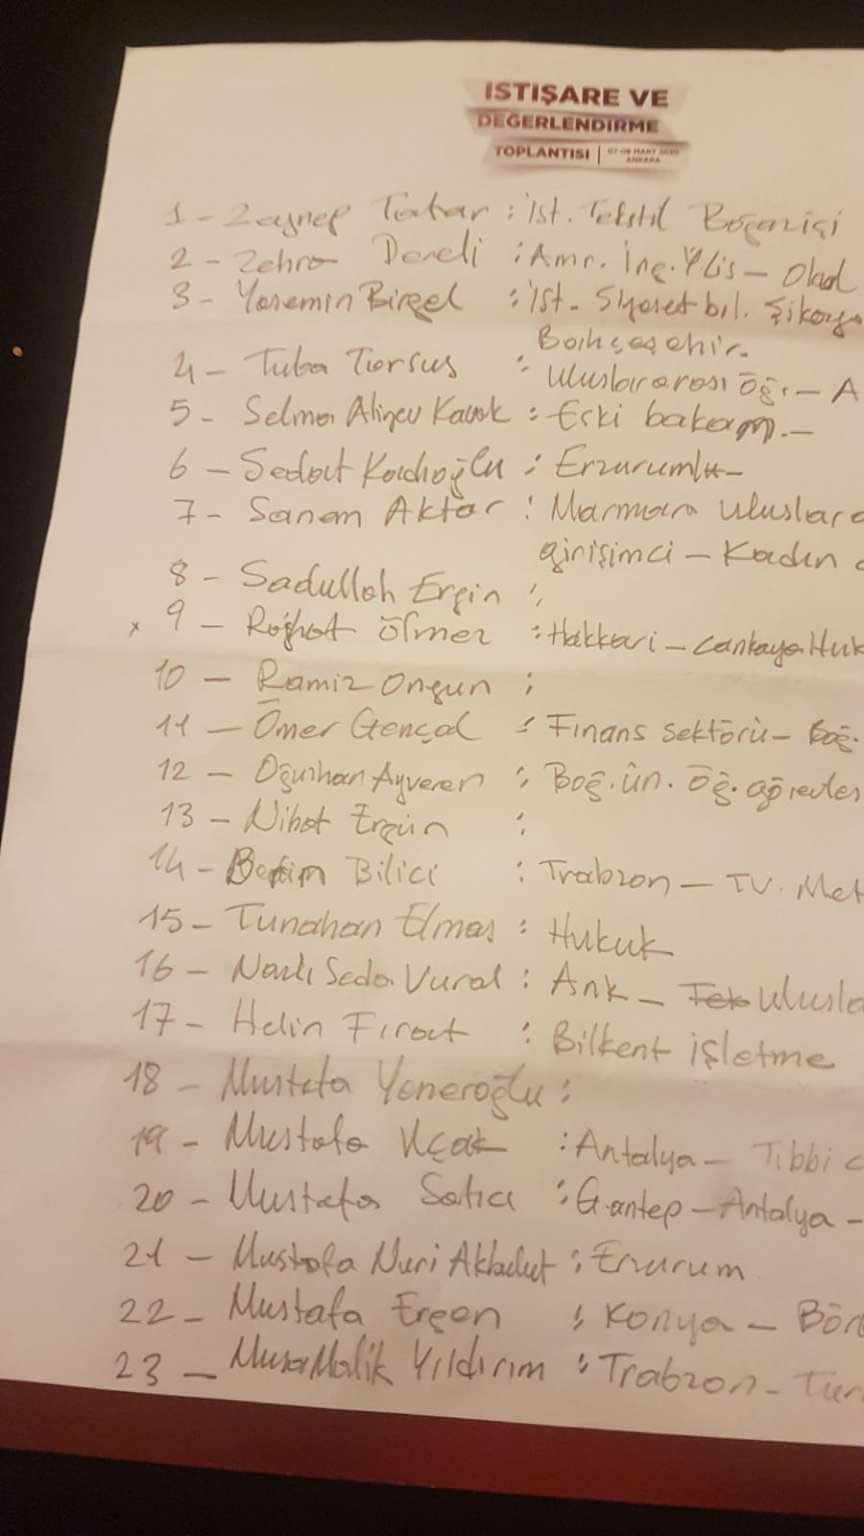 ISTIŞARE VE
DEĞERLENDIRME
TOPLANTISI | 07-08 MART 2020
ANKARA
1 - Zeynep Tatar : İst. Tekstil Boğaziçi
2 - Zehra Dereli : Amr. İng. Ylis - Okul
3 - Yasemin Birgel : İst. Siyaset bil. Şikago
Bahçeşehir.
4 - Tuba Torsus : Uluslararası Öğr. - A
5 - Selma Aliyev Kavak : Eski bakan -
6 - Sedat Kadıoğlu : Erzurumlu -
7 - Sanem Aktar : Marmara Uluslara
girişimci - Kadın
8 - Sadullah Ergin :
x 9 - Rojhat Ölmez : Hakkari - Çankaya Huk
10 - Ramiz Ongun :
11 - Ömer Gençal : Finans Sektörü - Boğ.
12 - Oğuzhan Ayveren : Boğ. Ün. Öğ.
13 - Nihat Ergün :
14 - Betim Bilici : Trabzon - TV. Met
15 - Tunahan Elmas : Hukuk
16 - Nazlı Seda Vural : Ank - Tek Ulusla
17 - Helin Fırat : Bilkent işletme
18 - Mustafa Yeneroğlu :
19 - Mustafa Uçak : Antalya - Tıbbi c
20 - Mustafa Satıcı : G.antep - Antalya -
21 - Mustafa Nuri Akbulut : Erzurum
22 - Mustafa Ergen : Konya - Bör
23 - Musa Malik Yıldırım : Trabzon - Tur